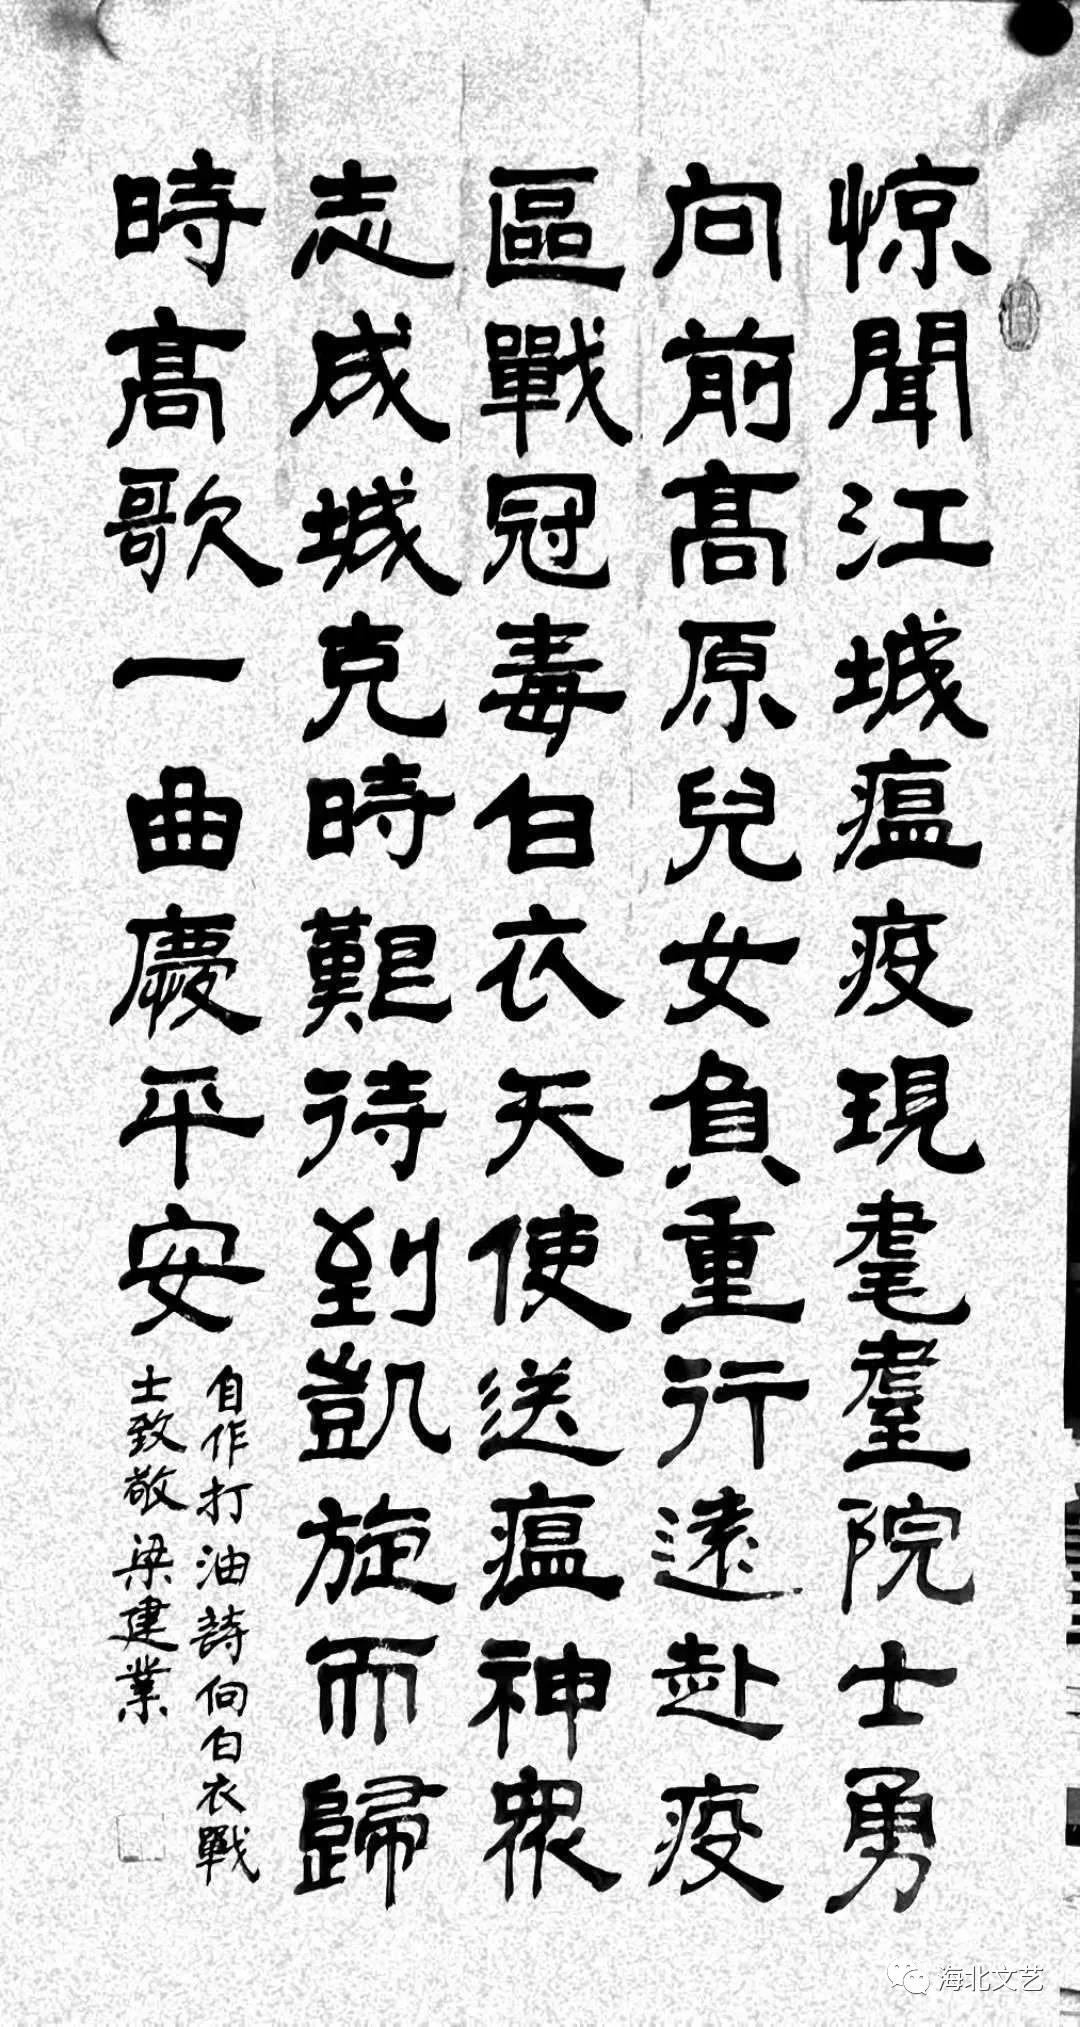 惊聞江城瘟疫現耄耋院士勇
向前高原兒女負重行遠赴疫
區戰冠毒白衣天使送瘟神衆
志成城克時艱待到凱旋而歸
時高歌一曲慶平安
自作打油詩向白衣戰
士致敬梁建業
海北文艺